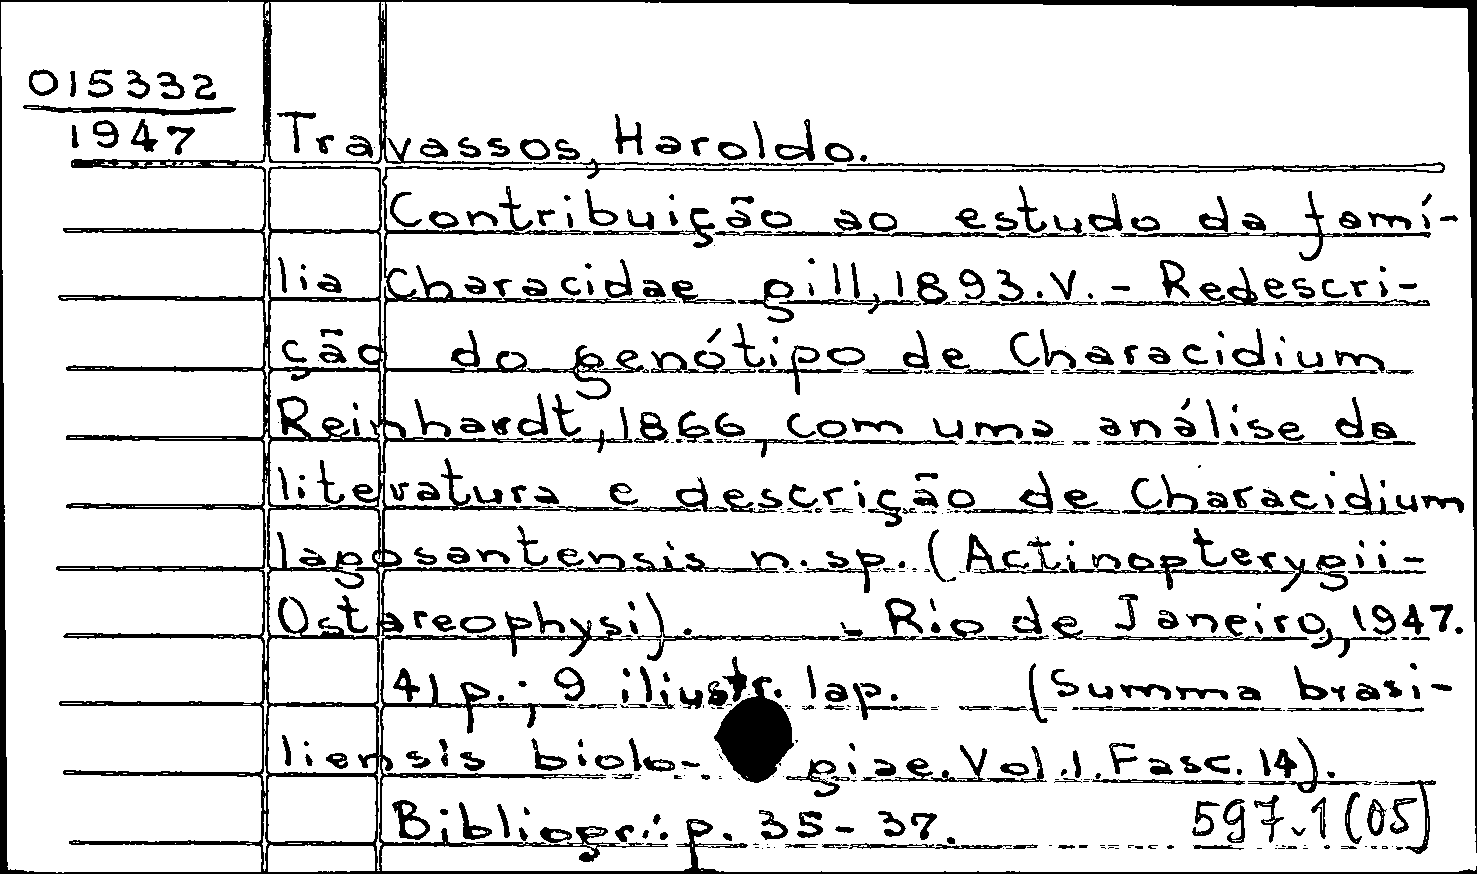 015332
1947
Travassos, Haroldo.
Contribuição ao estudo da famí-
lia Characidae gill, 1893. V. - Redescri-
ção do genótipo de Characidium
Reinhardt, 1866, com uma análise da
literatura e descrição de Characidium
lagosantensis n. sp. (Actinopterygii-
Ostareophysi). - Rio de Janeiro, 1947.
41 p.; 9 iliustr. 1ap. (Summa brasi-
liensis biolo- giae. Vol. 1. Fasc. 14).
Bibliogr.: p. 35-37. 597.1(05)